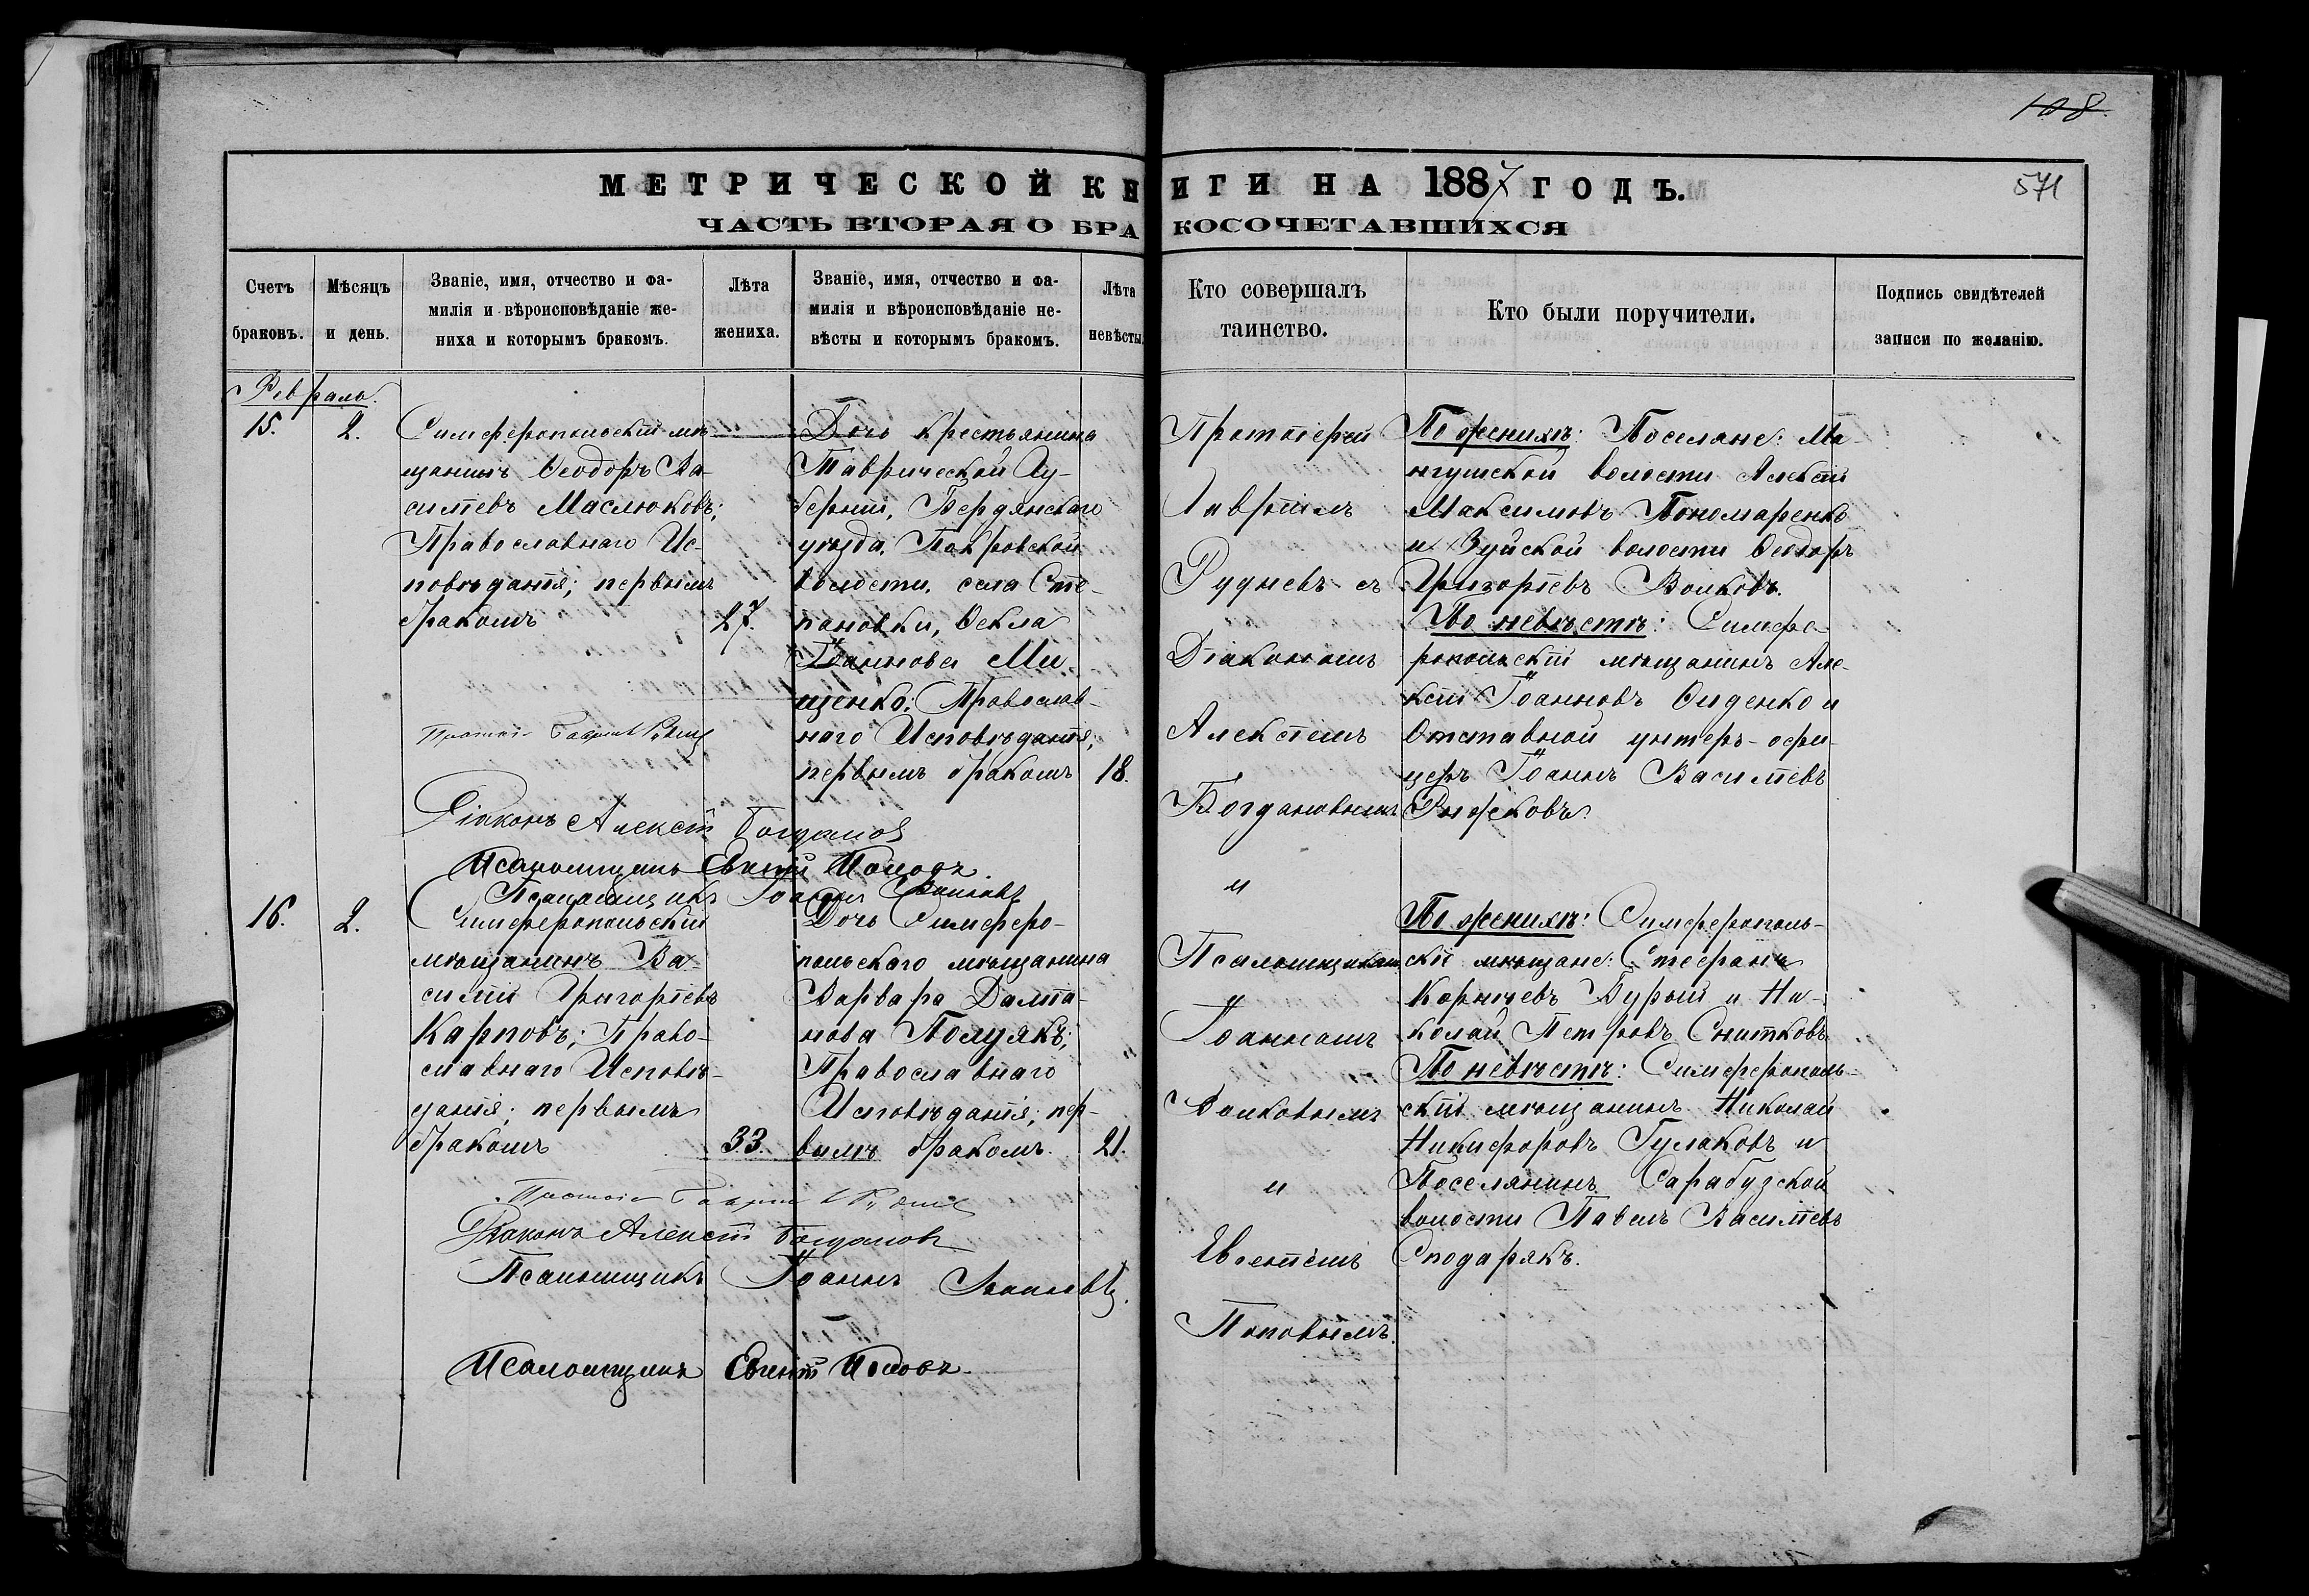 108.
МЕТРИЧЕСКОЙ КНИГИ НА 1887 ГОДЪ.
571
ЧАСТЬ ВТОРАЯ О БРАКОСОЧЕТАВШИХСЯ
Счетъ браковъ.
Мѣсяцъ и день.
Званіе, имя, отчество и фа-
милія и вѣроисповѣданіе же-
ниха и которымъ бракомъ.
Лѣта
жениха.
Званіе, имя, отчество и фа-
милія и вѣроисповѣданіе не-
вѣсты и которымъ бракомъ.
Лѣта
невѣсты.
Кто совершалъ
таинство.
Кто были поручители.
Подпись свидѣтелей
записи по желанію.
Февраль.
15.
2.
Симферопольскій мѣ-
щанинъ Ѳеодоръ Ва-
сильевъ Маслюковъ;
Православнаго Ис-
повѣданія; первымъ
бракомъ
27.
Дочь крестьянина
Таврической Гу-
берніи, Бердянскаго
уѣзда, Покровской
волости, села Сте-
пановки, Ѳекла
Іоаннова Ми-
щенко; Православ-
наго Исповѣданія;
первымъ бракомъ
18.
Протоіерей
Гавріилъ
Рудневъ съ
Діакономъ
Алексіемъ
Богдановымъ
и
Псаломщиками
Іоанномъ
Волковымъ
и
Евгеніемъ
Поповымъ.
По женихѣ: Поселяне: Ма-
нгушской волости Алексій
Максимовъ Пономаренко
и Зуйской волости Ѳеодоръ
Григоріевъ Волковъ.
По невѣстѣ: Симферо-
ропольскій мѣщанинъ Але-
ксій Іоанновъ Диденко и
Отставной унтеръ-офи-
церъ Іоаннъ Васильевъ
Рыжковъ.
Протоіе Гавріилъ Рудневъ
Діаконъ Алексій Богдановъ
Псаломщикъ Евгеній Поповъ
Псаломщикъ Іоаннъ Волковъ
16.
2.
Симферопольскій
мѣщанинъ Ва-
силій Григоріевъ
Карповъ; Право-
славнаго Исповѣ-
данія; первымъ
бракомъ
33.
Дочь Симферо-
польскаго мѣщанина
Варвара Даміа-
нова Полулякъ;
Православнаго
Исповѣданія; пер-
вымъ бракомъ.
21.
По женихѣ: Симферополь-
скіе мѣщане: Стефанъ
Корнѣевъ Бурый и Ни-
колай Петровъ Снитковъ
По невѣстѣ: Симферополь-
скій мѣщанинъ Николай
Никифоровъ Гулаковъ и
Поселянинъ Сарабузской
волости Павелъ Васильевъ
Сподарякъ.
Протоіе Гавріилъ Рудневъ
Діаконъ Алексій Богдановъ
Псаломщикъ Іоаннъ Волковъ.
Псаломщикъ Евгеній Поповъ